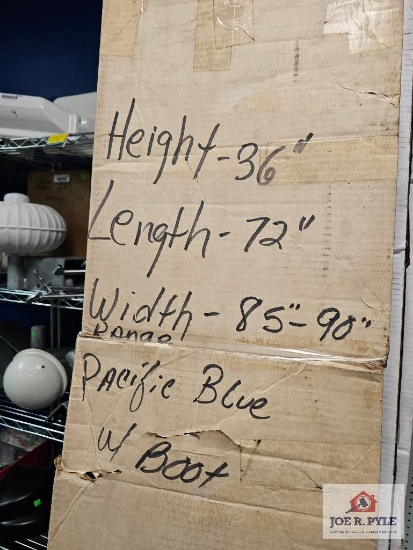 Height-36"
Length-72"
Width-85"-90"
Range
Pacific Blue
w/ Boot
JOE R. PYLE